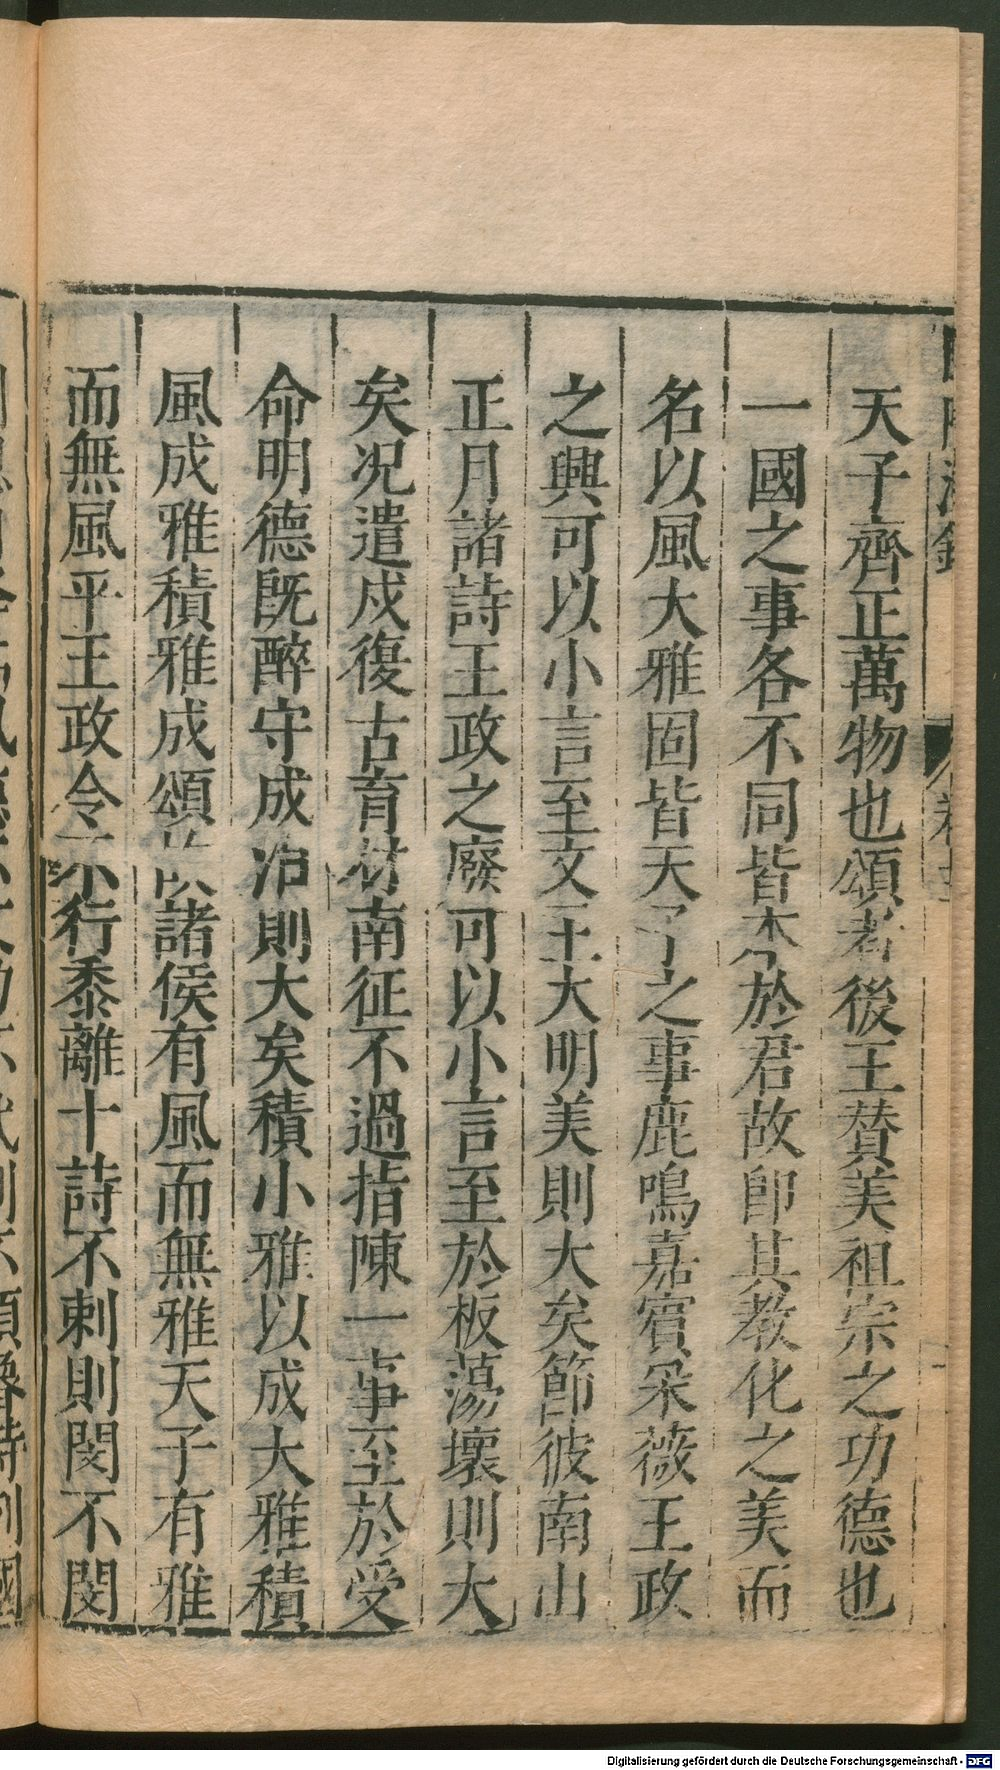 天子齊正萬物也頌者後王贊美祖宗之功德也
一國之事各不同皆本於君故卽其教化之美而
名以風大雅固皆天子之事鹿鳴嘉賓采薇王政
之興可以小言至文王大明美則大矣節彼南山
正月諸詩王政之廢可以小言至於板蕩壞則大
矣况遣戍復古育材南征不過指陳一事至於受
命明德既醉守成治則大矣積小雅以成大雅積
風成雅積雅成頌故諸侯有風而無雅天子有雅
而無風平王政令不行黍離十詩不刺則閔不閔
Digitalisierung gefördert durch die Deutsche Forschungsgemeinschaft - DFG